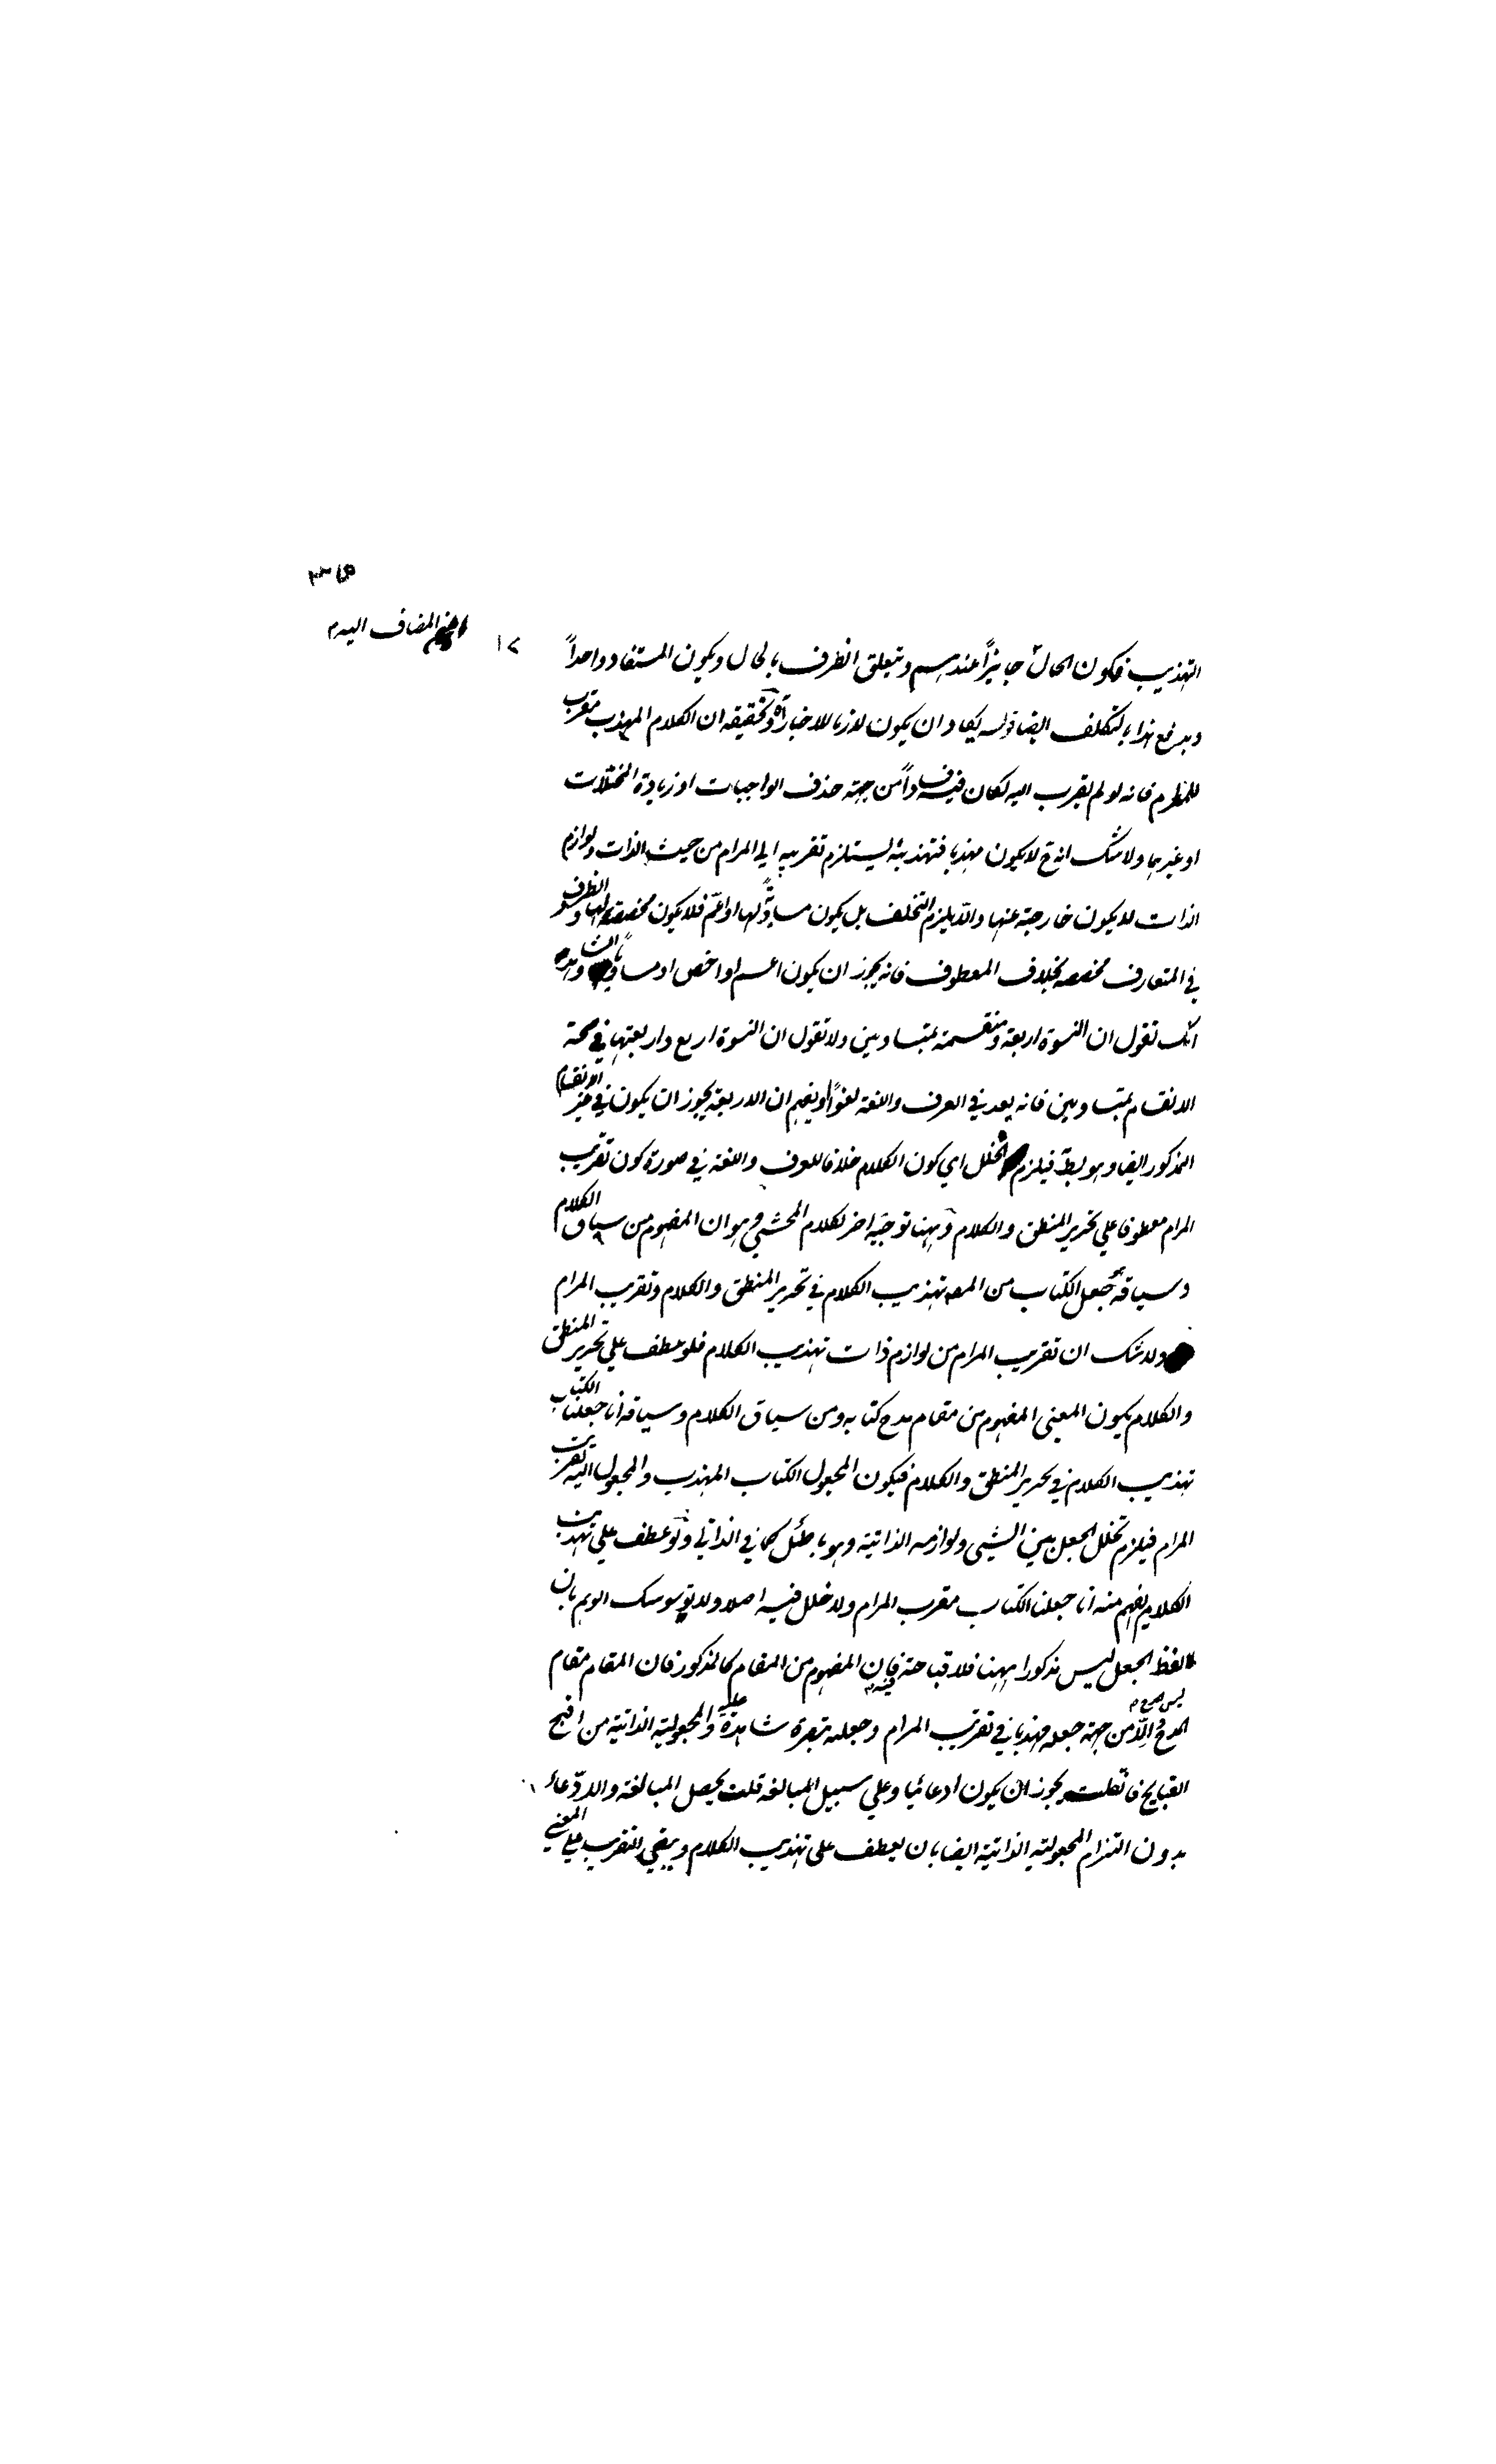 المضاف اليه م
التهذيب فكون الحال جايزاً عندهم ويتعلق الظرف بالحال ويكون المستفاد واحداً
ويدفع هذا بالتكلف ايضا قوله يكاد ان يكون لازما للاخبار اه وتحقيقه ان الكلام المهذب مقرب
للمرام فانه لو لم يقرب اليه لكان فيه فساداً من جهة حذف الواجبات او زيادة المخلات
او غيرهما ولا شك انه ح لا يكون مهذبا فتهذيبه يستلزم تقريبه الى المرام من حيث الذات ولوازم
الذات لا يكون خارجة عنها والا يلزم التخلف بل يكون مساوية لها او اعم فلا يكون مخصصة لها والظرف
في المتعارف مخصصة بخلاف المعطوف فانه يجوز ان يكون اعم او اخص او مساويا
انك تقول ان النسوة اربعة ومنقسمة بمتساويين ولا تقول ان النسوة اربع واربعتها في صحة
الانقسام بمتساويين فانه يعد في العرف واللغة لغواً ويفهم ان الاربعة يجوز ان يكون في غير الانقسام
المذكور ايضا وهو بط فيلزم الخلل اي كون الكلام خلافا للعرف واللغة في صورة كون تقريب
المرام معطوفا على تحرير المنطق والكلام وههنا توجيه اخر لكلام المحشي وهو ان المفهوم من سياق الكلام
وسياقه جعل الكتاب من المص تهذيب الكلام في تحرير المنطق والكلام وتقريب المرام
ولا شك ان تقريب المرام من لوازم ذات تهذيب الكلام فلو عطف على تحرير المنطق
والكلام يكون المعنى المفهوم من مقام مدح كتابه ومن سياق الكلام وسياقه انا جعلنا الكتاب
تهذيب الكلام في تحرير المنطق والكلام فيكون المجعول الكتاب المهذب والمجعول اليه تقريب
المرام فيلزم تخلل الجعل بين الشيى ولوازمه الذاتية وهو باطل كما في الذاتي ولو عطف على تهذيب
الكلام يفهم منه انا جعلنا الكتاب مقرب المرام ولا خلل فيه اصلا ولا يوسوسك الوهم بان
لفظ الجعل ليس مذكورا ههنا فلا قباحة فيه فان المفهوم من المقام كالمذكور فان المقام مقام
المدح وليس هو الا من جهة جعله مهذبا في تقريب المرام وجعله تبصرة شاهدة عليه والمجعولية الذاتية من اقبح
القبايح فان قلت يجوز ان يكون ادعائيا وعلى سبيل المبالغة قلت يحصل المبالغة والادعاء
بدون التزام المجعولية الذاتية ايضا بان يعطف على تهذيب الكلام ويبقى التقريب على المعنى